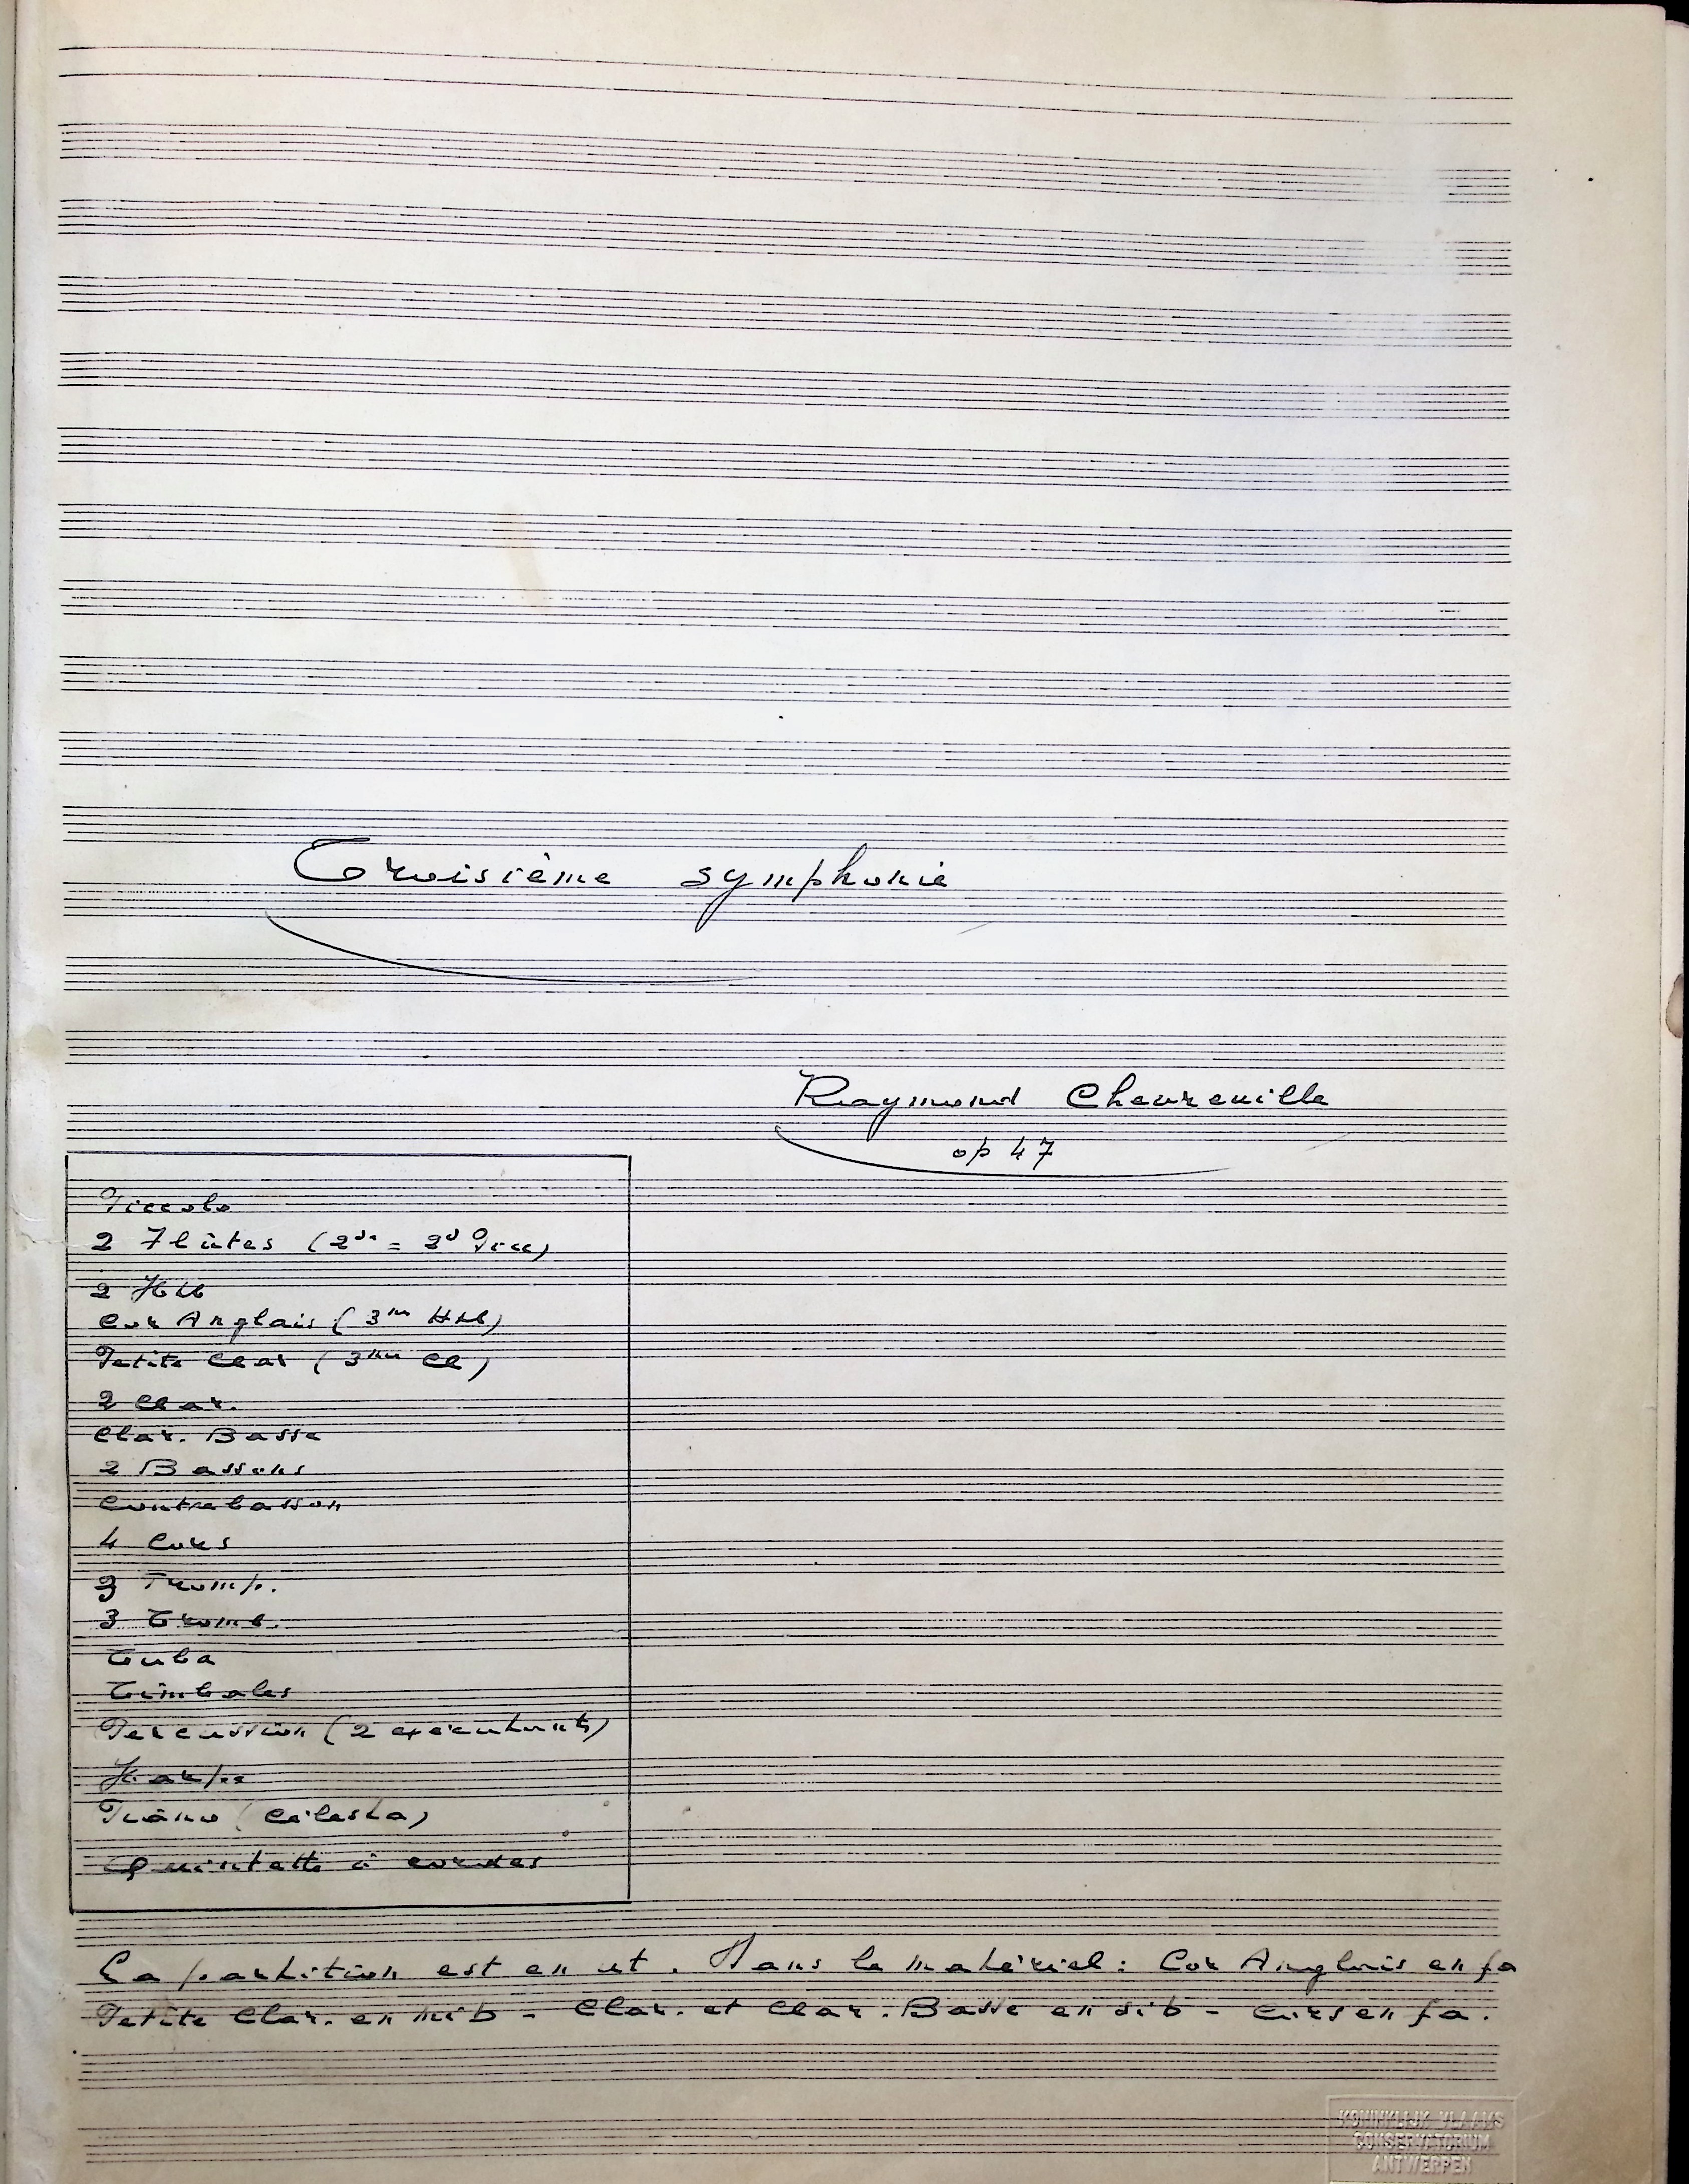 Troisième symphonie
Raymond Chevreuille
op 47
Piccolo
2 Flûtes (2de = 2d Picc)
2 Htb
Cor Anglais (3me Htb)
Petite Clar (3me Cl)
2 Clar.
Clar. Basse
2 Bassons
Contrebasson
4 Cors
3 Tromp.
3 Tromb.
Tuba
Timbales
Percussion (2 exécutants)
Harpe
Piano (Célesta)
Quintette à cordes
La partition est en ut. Dans le matériel : Cor Anglais en fa
Petite Clar. en mib - Clar. et Clar. Basse en sib - Cors en fa.
KONINKLIJK VLAAMS
CONSERVATORIUM
ANTWERPEN